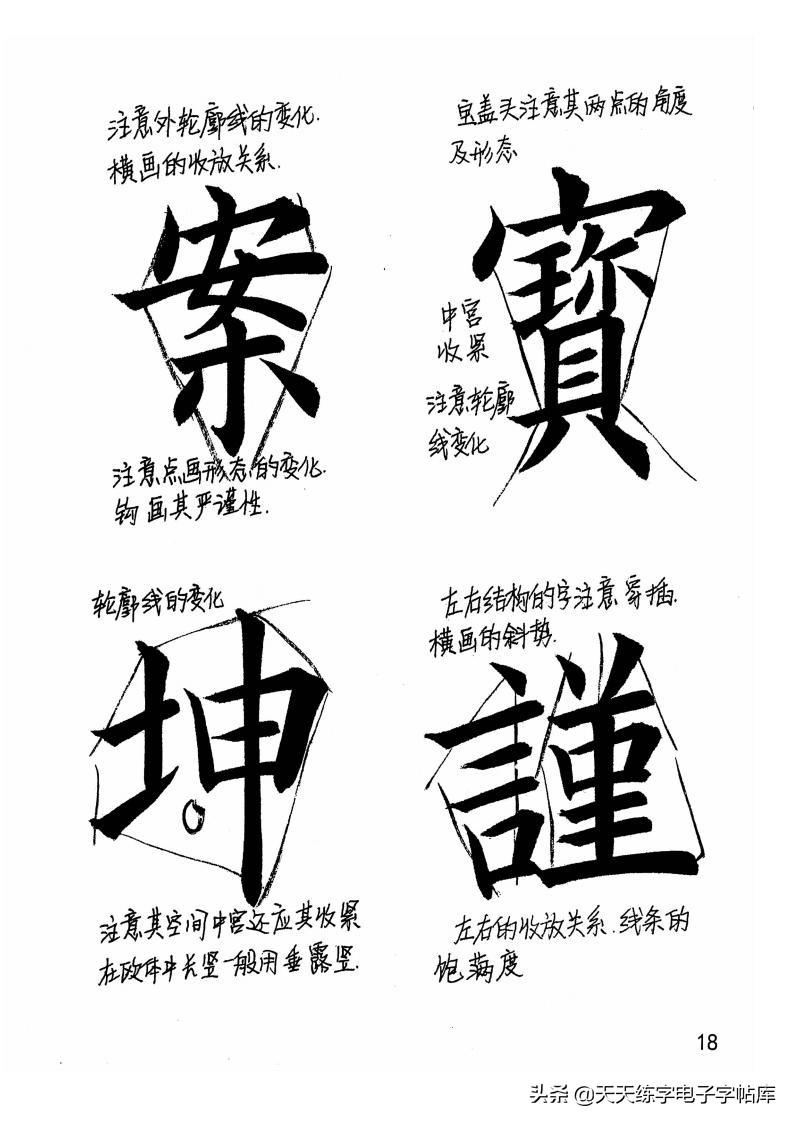 注意外轮廓线的变化.
横画的收放关系.
案
注意点画形态的变化.
钩画其严谨性.
宝盖头注意其两点的角度
及形态
寳
中宫
收紧
注意轮廓
线变化
轮廓线的变化
坤
注意其空间中宫还应其收紧
在欧体中长竖一般用垂露竖.
左右结构的字注意穿插.
横画的斜势.
謹
左右的收放关系.线条的
饱满度
18
头条 @天天练字电子字帖库